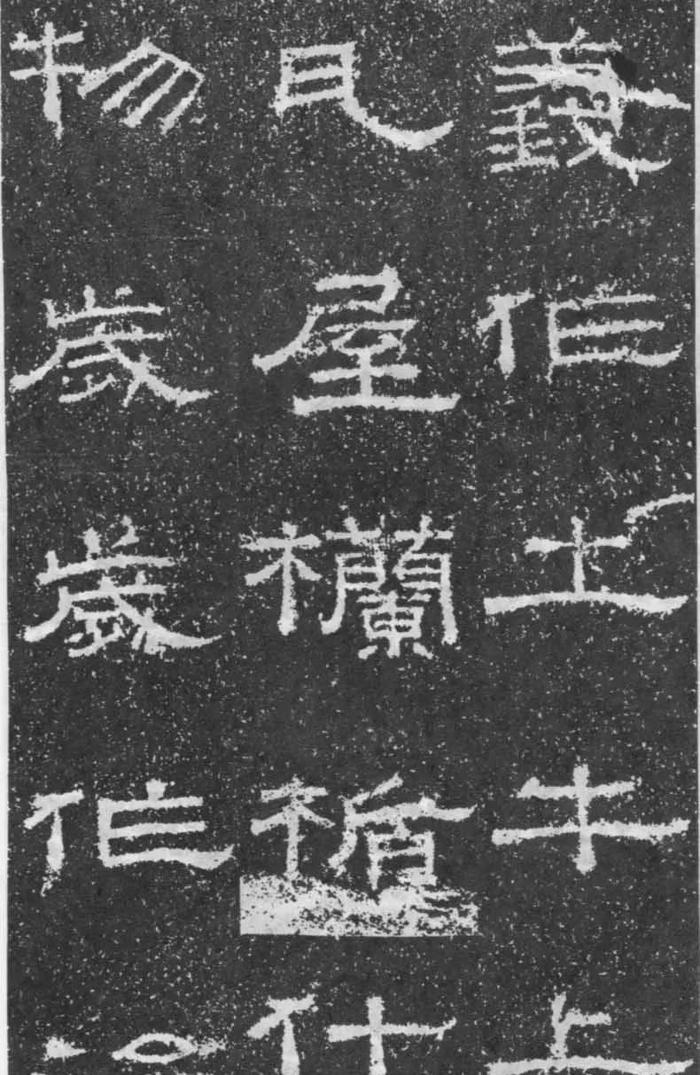 義作土牛上
瓦屋欄楯什
物歲歲作